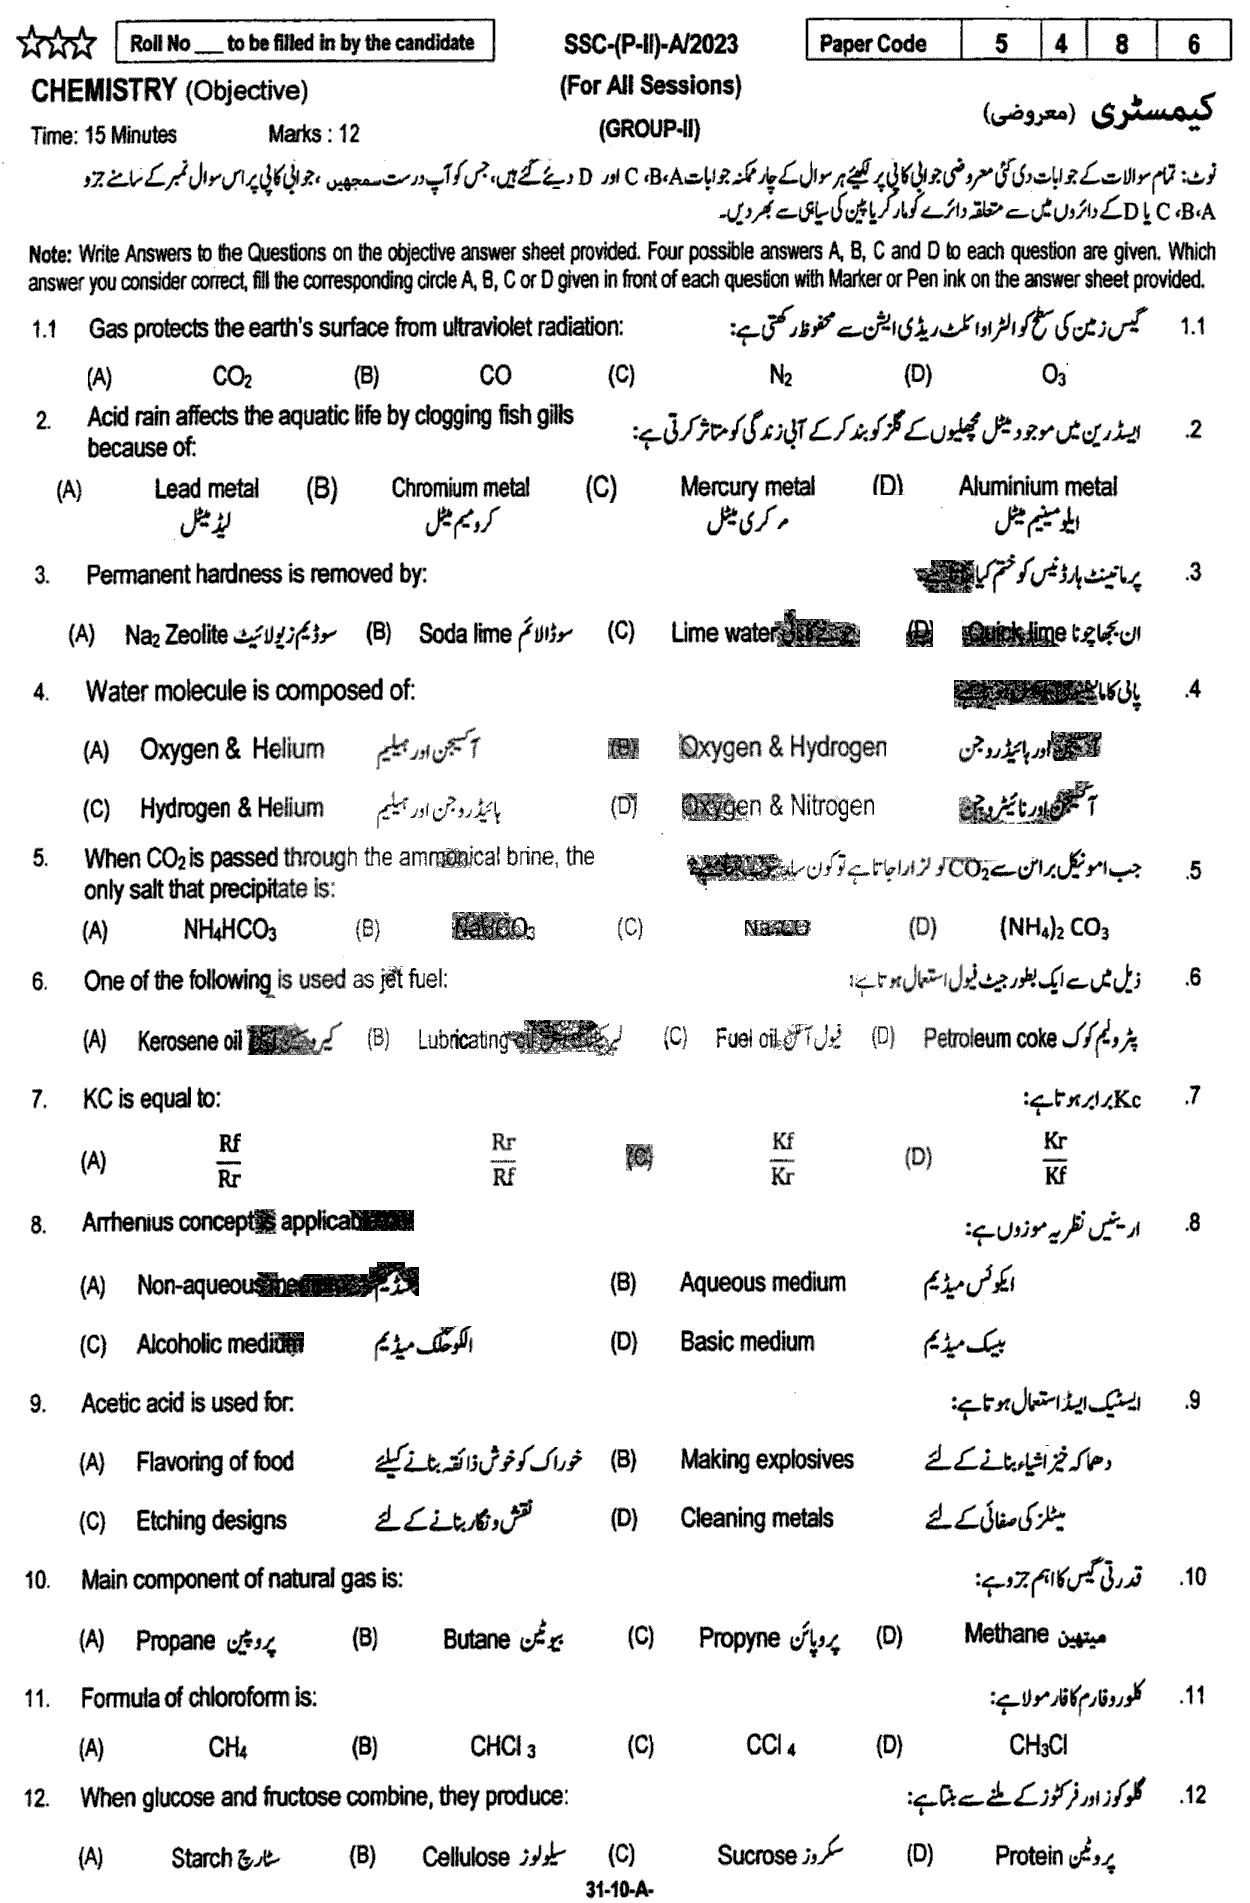 Roll No ___ to be filled in by the candidate SSC-(P-II)-A/2023 Paper Code 5 4 8 6
CHEMISTRY (Objective) (For All Sessions) کیمسٹری (معروضی)
Time: 15 Minutes Marks : 12 (GROUP-II)
نوٹ: تمام سوالات کے جوابات دی گئی معروضی جوابی کاپی پر لکھیئے ہر سوال کے چار ممکنہ جوابات C ،B،A اور D دیئے گئے ہیں، جس کو آپ درست سمجھیں ، جوابی کاپی پر اس سوال نمبر کے سامنے جزو
C ،B،A یا D کے دائروں میں سے متعلقہ دائرے کو مارکر یا پین کی سیاہی سے بھر دیں۔
Note: Write Answers to the Questions on the objective answer sheet provided. Four possible answers A, B, C and D to each question are given. Which
answer you consider correct, fill the corresponding circle A, B, C or D given in front of each question with Marker or Pen ink on the answer sheet provided.
1.1 Gas protects the earth's surface from ultraviolet radiation: گیس زمین کی سطح کو الٹراوائلٹ ریڈی ایشن سے محفوظ رکھتی ہے: 1.1
(A) CO₂ (B) CO (C) N₂ (D) O₃
2. Acid rain affects the aquatic life by clogging fish gills
because of: ایسڈ رین میں موجود میٹل مچھلیوں کے گلز کو بند کر کے آبی زندگی کو متاثر کرتی ہے: .2
(A) Lead metal (B) Chromium metal (C) Mercury metal (D) Aluminium metal
لیڈ میٹل کرومیم میٹل مرکری میٹل ایلومینیم میٹل
3. Permanent hardness is removed by: پرمانینٹ ہارڈنیس کو ختم کیا .3
(A) Na₂ Zeolite سوڈیم زیولائیٹ (B) Soda lime سوڈالائم (C) Lime water (D) Quick lime ان بجھا چونا
4. Water molecule is composed of: پانی کا .4
(A) Oxygen & Helium آکسیجن اور ہیلیم (B) Oxygen & Hydrogen اور ہائیڈروجن
(C) Hydrogen & Helium ہائیڈروجن اور ہیلیم (D) Oxygen & Nitrogen آکسیجن اور نائیٹروجن
5. When CO₂ is passed through the ammonical brine, the
only salt that precipitate is: جب امونیکل برائن سے CO₂ کو گزارا جاتا ہے تو کون سا .5
(A) NH₄HCO₃ (B) NaHCO₃ (C) (D) (NH₄)₂ CO₃
6. One of the following is used as jet fuel: ذیل میں سے ایک بطور جیٹ فیول استعمال ہوتا ہے: .6
(A) Kerosene oil (B) Lubricating oil (C) Fuel oil فیول آئل (D) Petroleum coke پٹرولیم کوک
7. KC is equal to: Kc برابر ہوتا ہے: .7
(A) Rf/Rr Rr/Rf (C) Kf/Kr (D) Kr/Kf
8. Arrhenius concept is applicable ارہینیس نظریہ موزوں ہے: .8
(A) Non-aqueous (B) Aqueous medium ایکوئس میڈیم
(C) Alcoholic medium الکوحلک میڈیم (D) Basic medium بیسک میڈیم
9. Acetic acid is used for: ایسٹیک ایسڈ استعمال ہوتا ہے: .9
(A) Flavoring of food خوراک کو خوش ذائقہ بنانے کیلئے (B) Making explosives دھماکہ خیز اشیاء بنانے کے لئے
(C) Etching designs نقش و نگار بنانے کے لئے (D) Cleaning metals میٹلز کی صفائی کے لئے
10. Main component of natural gas is: قدرتی گیس کا اہم جزو ہے: .10
(A) Propane پروپین (B) Butane بیوٹین (C) Propyne پروپائن (D) Methane میتھین
11. Formula of chloroform is: کلوروفارم کا فارمولا ہے: .11
(A) CH₄ (B) CHCl ₃ (C) CCl ₄ (D) CH₃Cl
12. When glucose and fructose combine, they produce: گلوکوز اور فرکٹوز کے ملنے سے بنتا ہے: .12
(A) Starch سٹارچ (B) Cellulose سیلولوز (C) Sucrose سکروز (D) Protein پروٹین
31-10-A-